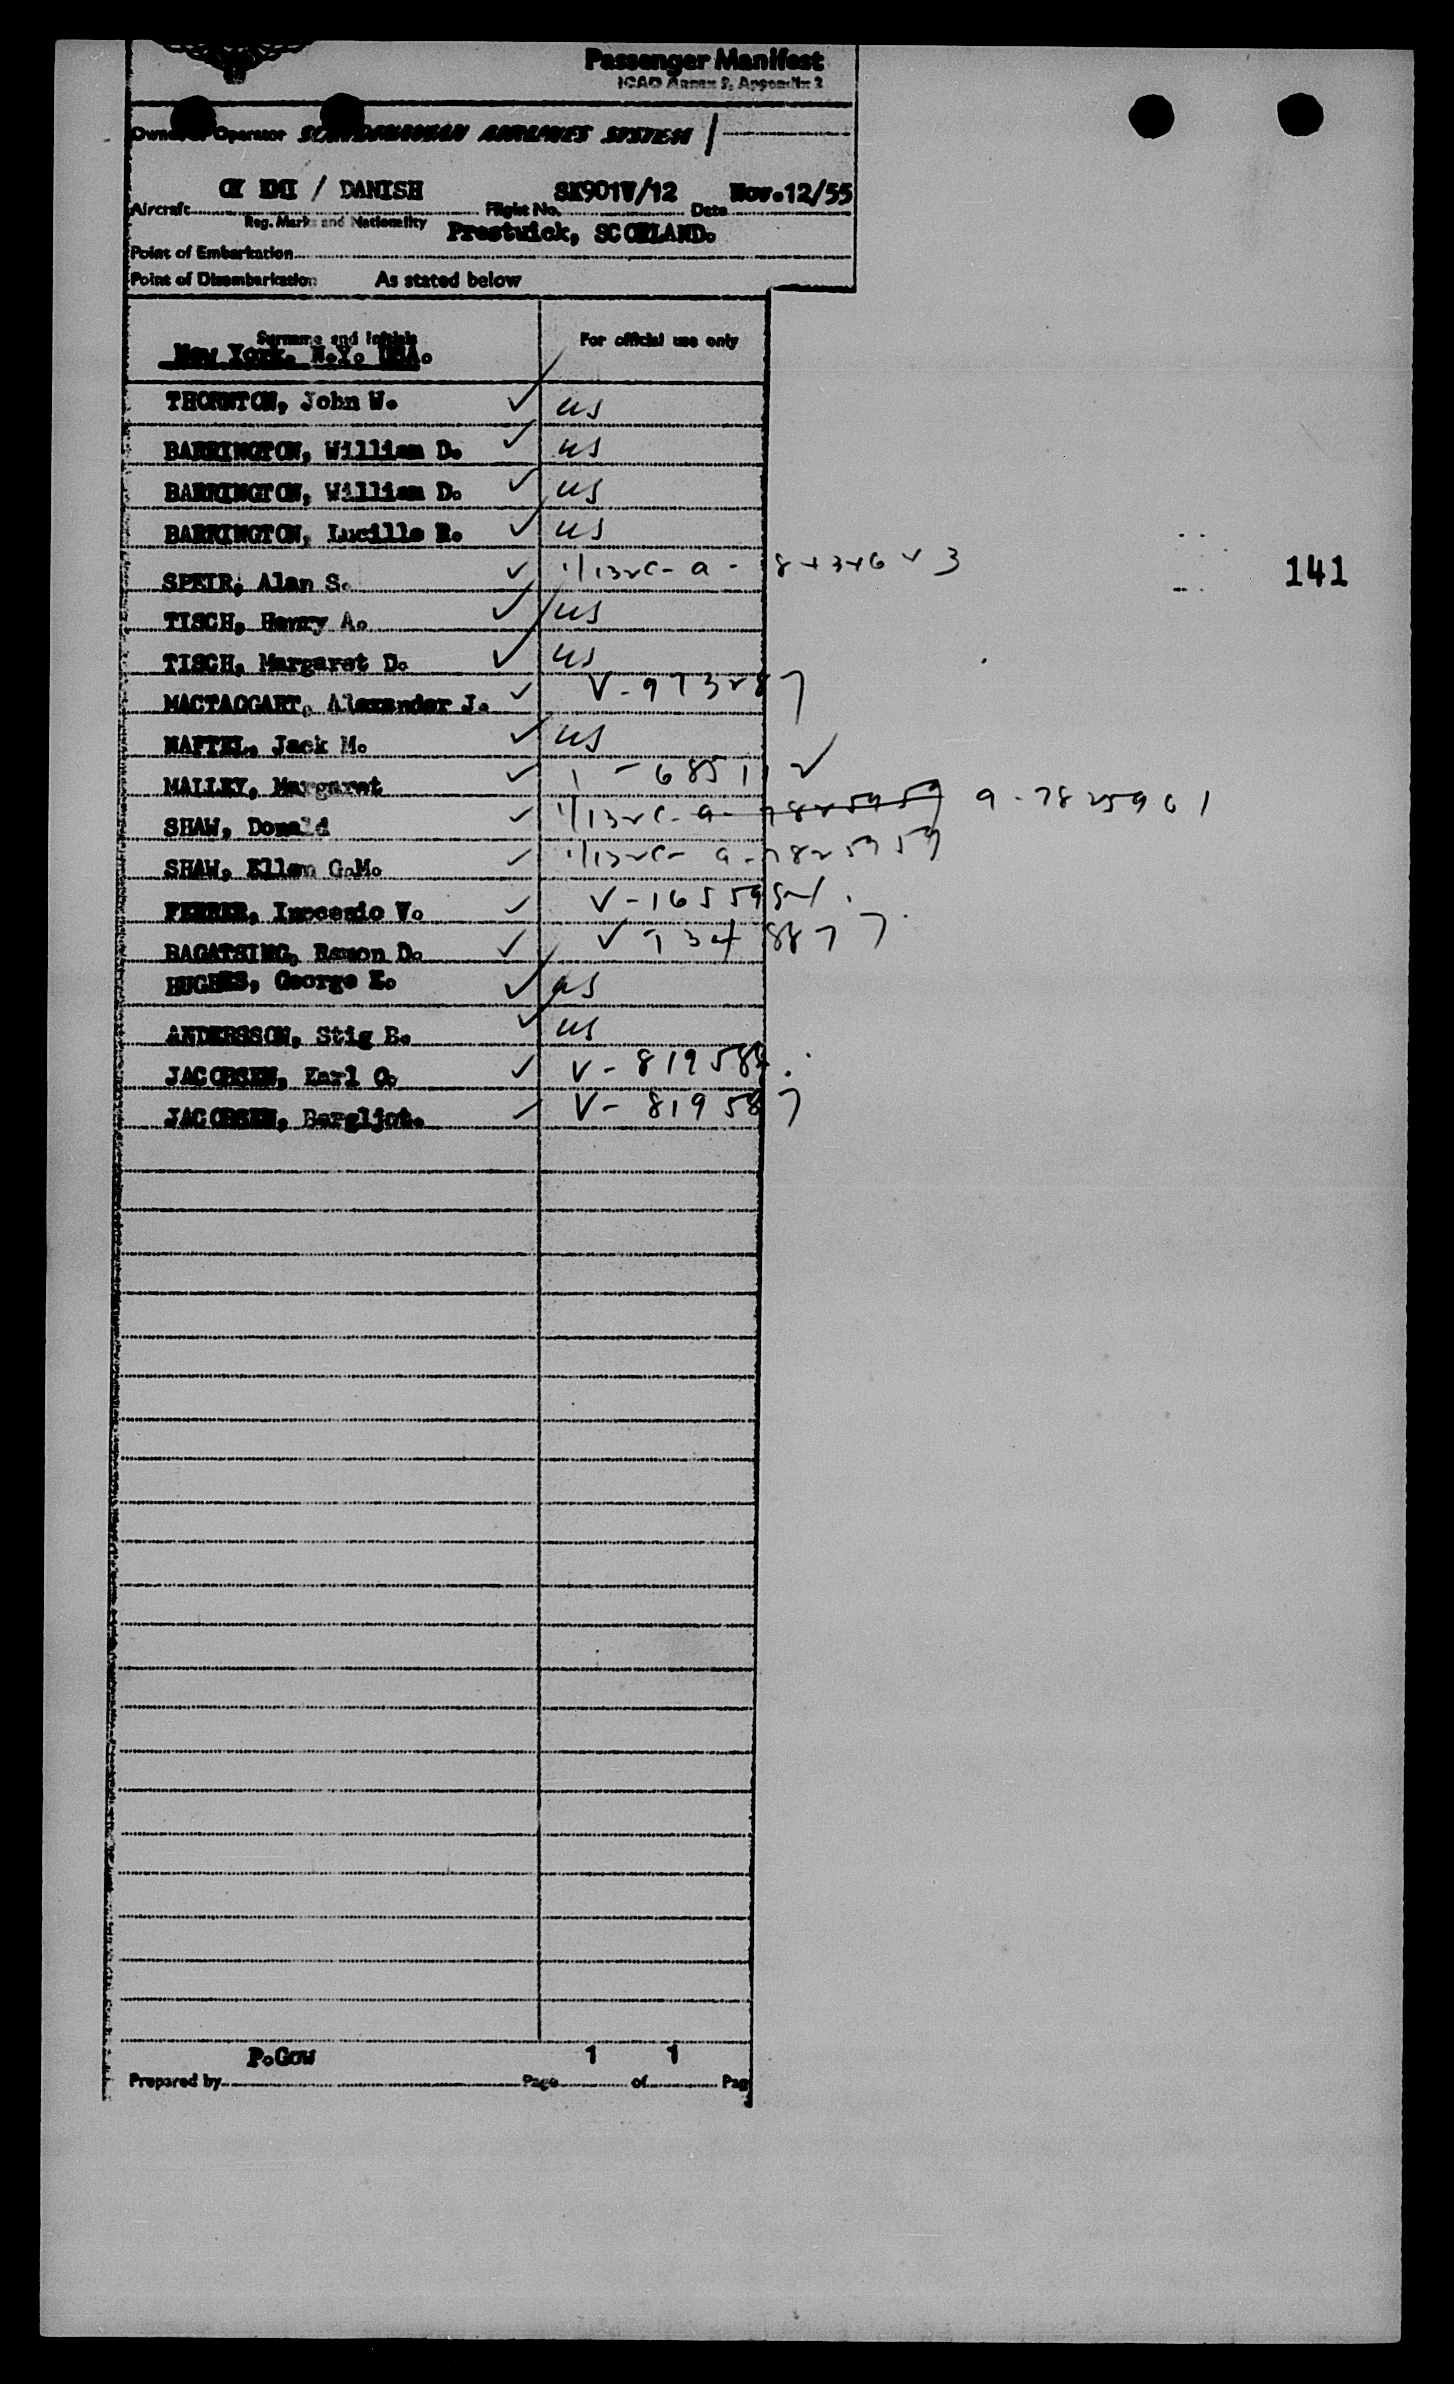 Passenger Manifest
ICAO Annex 9, Appendix 2
Owner or Operator SCANDINAVIAN AIRLINES SYSTEM
OY KMI / DANISH SK901W/12 Nov.12/55
Aircraft Flight No. Date
Reg. Marks and Nationality
Prestwick, SCOTLAND.
Point of Embarkation
Point of Disembarkation As stated below
Surname and Initials For official use only
New York. N.Y. USA.
THORNTON, John W. ✓ us
BARRINGTON, William D. ✓ us
BARRINGTON, William D. ✓ us
BARRINGTON, Lucille R. ✓ us
SPEIR, Alan S. ✓
141
TISCH, Henry A. ✓ us
TISCH, Margaret D. ✓ us
MACTAGGART, Alexander J. ✓ V-973287
NAFTEL, Jack M. ✓ us
MALLEY, Margaret ✓ 1-685112
SHAW, Donald ✓ a-7825959 a-7825961
SHAW, Ellen G.M. ✓ a-7825959
FERRER, Inocencio V. ✓
BAGATSING, Ramon D. ✓ V 7348877
HUGHES, George E. ✓ us
ANDERSSON, Stig B. ✓ us
JACOBSEN, Karl O. ✓ V-819588
JACOBSEN, Bergljot. ✓ V-819587
P.Gow 1 1
Prepared by Page of Pag